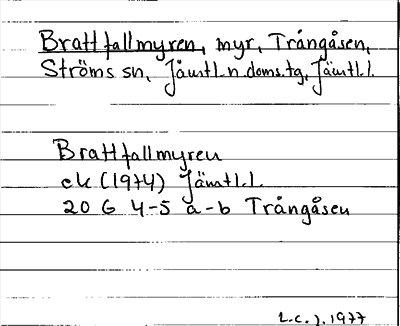 Brattfallmyren, myr, Trångåsen,
Ströms sn, Jämtl. n. doms. tg, Jämtl. l.
Brattfallmyren
ek (1974) Jämtl. l.
20 G 4-5 a-b Trångåsen
L.c.j. 1977